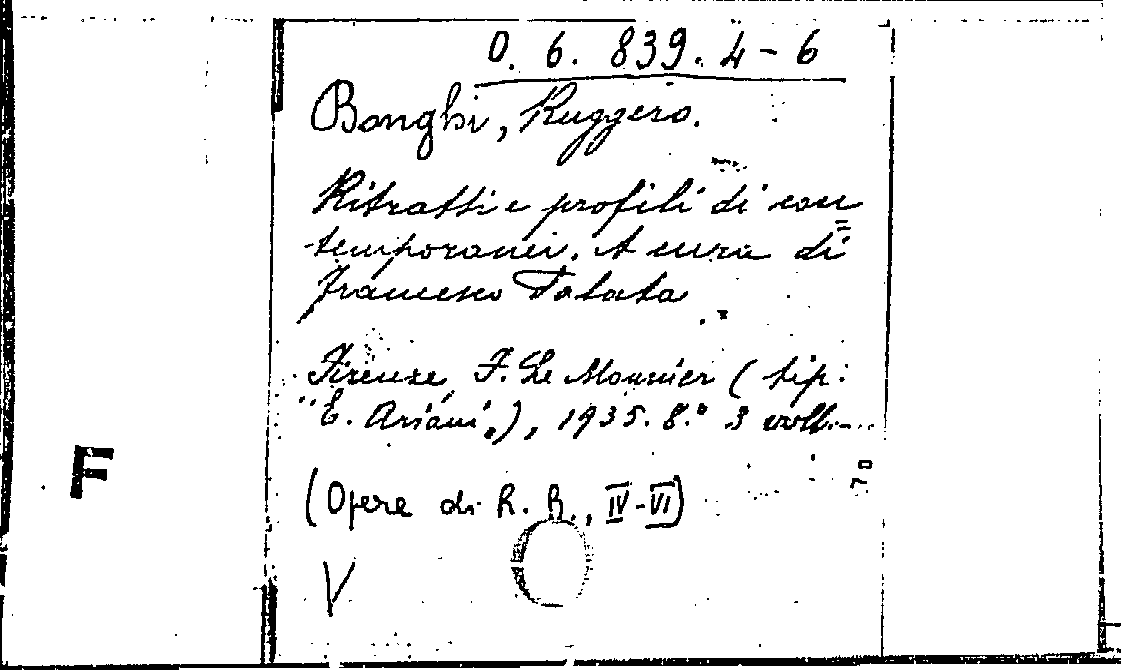 O. 6. 839. 4-6
Bonghi, Ruggero.
Ritratti e profili di con=
temporanei. A cura di
Francesco Salata
Firenze, F. Le Monnier (tip.
"E. Ariani„), 1935. 8.° 3 voll.
(Opere di R. B., IV-VI)
V
F
70